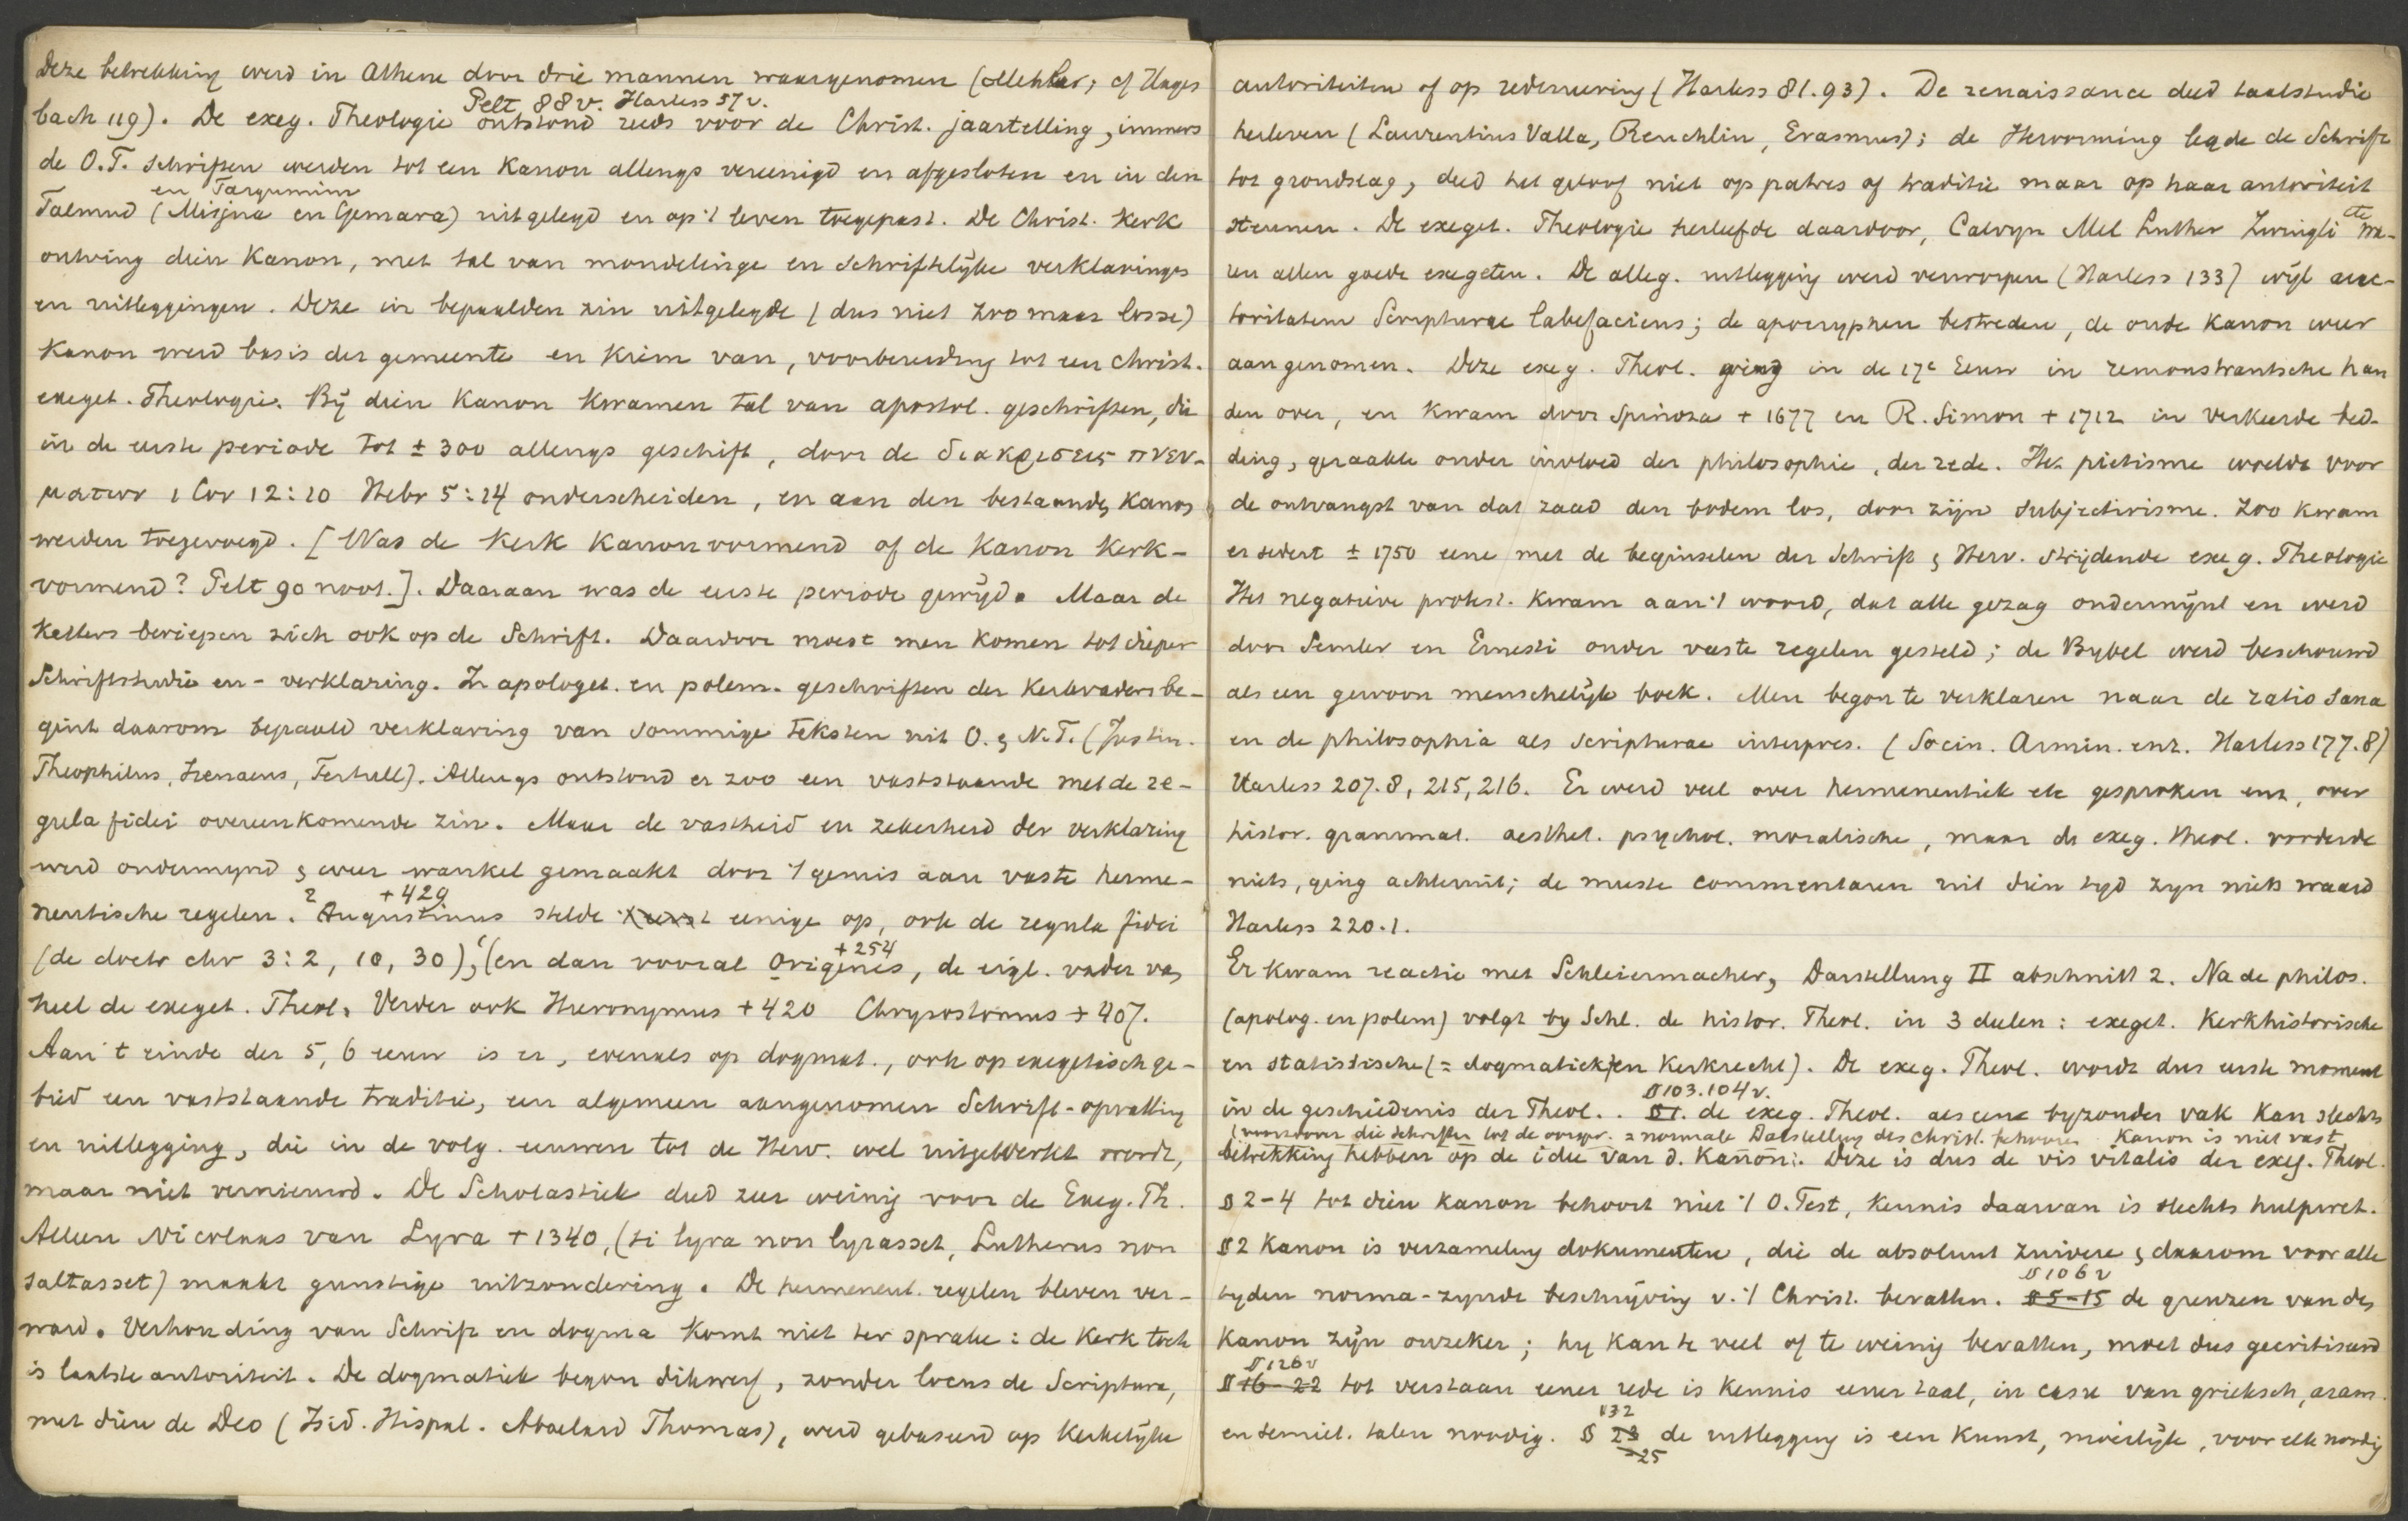 Deze betrekking werd in Athene door drie mannen waargenomen (Mehler; cf Hagen
Pelt 88v. Harless 57v.
bach 119). De exeg. Theologie ontstond reeds voor de Christ. jaartelling, immers
de O.T. schriften werden tot een Kanon allengs vereenigd en afgesloten en in den
en Targumim
Talmud (Misjna en Gemara) uitgelegd en op 't leven toegepast. De Christ. Kerk
ontving dien Kanon, met tal van mondelinge en schriftelijke verklaringen
en uitleggingen. Deze in bepaalden zin uitgelegde (dus niet zoo maar losse)
Kanon werd basis der gemeente en Kiem van, voorbereiding tot een christ.
exeget. Theologie. Bij dien Kanon kwamen tal van apostol. geschriften, die
in de eerste periode tot ± 300 allengs geschift, door de διακρισεις πνευ-
ματων 1 Cor 12:10 Hebr 5:14 onderscheiden, en aan den bestaanden Kanon
werden toegevoegd. [Was de Kerk Kanonvormend of de Kanon Kerk-
vormend? Pelt 90 noot.]. Daaraan was de eerste periode gewijd. Maar de
Ketters beriepen zich ook op de Schrift. Daardoor moest men komen tot dieper
Schriftstudie en - verklaring. In apologet. en polem. geschriften der Kerkvaders be-
gint daarom bepaald verklaring van sommige teksten uit O. & N.T. (Justin.
Theophilus, Irenaeus, Tertull). Allengs ontstond er zoo een vaststaande met de re-
gula fidei overeenkomende zin. Maar de vastheid en zekerheid der verklaring
werd ondermijnd & weer wankel gemaakt door 't gemis aan vaste herme-
2 +429
neutische regelen. Augustinus stelde eenige op, ook de regula fidei
+254
(de doctr chr 3:2, 10, 30), (en dan vooral Origenes, de eigl. vader van
heel de exeget. Theol. Verder ook Hieronymus +420 Chrysostomus + 407.
Aan 't einde der 5, 6 eeuw is er, evenals op dogmat., ook op exegetisch ge-
bied een vaststaande traditie, een algemeen aangenomen Schrift-opvatting
en uitlegging, die in de volg. eeuwen tot de Herv. wel uitgewerkt wordt,
maar niet vernieuwd. De Scholastiek deed zeer weinig voor de Exeg. Th.
Alleen Nicolaas van Lyra + 1340, (si lyra non lyrasset, Lutherus non
saltasset) maakt gunstige uitzondering. De hermeneut. regelen bleven ver-
ward. Verhouding van Schrift en dogma komt niet ter sprake: de Kerk toch
is laatste autoriteit. De dogmatiek begon dikwerf, zonder locus de Scriptura,
met dien de Deo (Isid. Hispal. Abaelard Thomas), werd gebaseerd op Kerkelijke
autoriteiten of op redeneering (Harless 81.93). De renaissance deed taalstudie
herleven (Laurentius Valla, Reuchlin, Erasmus); de Hervorming legde de Schrift
tot grondslag, deed het geloof niet op patres of traditie maar op haar autoriteit
etc
steunen. De exeget. Theologie herleefde daardoor, Calvyn Mel Luther Zwingli wa-
ren allen goede exegeten. De alleg. uitlegging werd verworpen (Harless 133) wijl auc-
toritatem Scripturae labefaciens; de apocryphen bestreden, de oude Kanon weer
aangenomen. Deze exeg. Theol. ging in de 17e Eeuw in remonstrantsche han
den over, en kwam door Spinoza + 1677 en R. Simon + 1712 in verkeerde bed-
ding, geraakte onder invloed der philosophie, der rede. Het pietisme woelde voor
de ontvangst van dat zaad den bodem los, door zijn subjectivisme. Zoo kwam
er sedert ± 1750 eene met de beginselen der Schrift & Herv. strijdende exeg. Theologie
Het negatieve protest. kwam aan 't woord, dat alle gezag ondermijnt en werd
door Semler en Ernesti onder vaste regelen gesteld; de Bybel werd beschouwd
als een gewoon menschelijk boek. Men begon te verklaren naar de ratio sana
en de philosophia als scripturae interpres. (Socin. Armin. enz. Harless 177.8)
Harless 207.8, 215, 216. Er werd veel over hermeneutiek etc gesproken enz, over
histor. grammat. aesthet. psychol. moralische, maar de exeg. theol. vorderde
niets, ging achteruit; de meeste commentaren uit dien tyd zyn niets waard
Harless 220.1.
Er kwam reactie met Schleiermacher, Darstellung II abschnitt 2. Na de philos.
(apolog. en polem) volgt by Schl. de histor. Theol. in 3 deelen: exeget. Kerkhistorische
en statistische (= dogmatiek en Kerkrecht). De exeg. Theol. wordt dus eerste moment
§ 103.104v.
in de geschiedenis der Theol.. § 1. de exeg. Theol. als eene byzonder vak kan slechts
die schriften tot de oorspr. = normale Darstellung des christ. behooren Kanon is niet vast
betrekking hebben op de idee van d. Kanon. Deze is dus de vis vitalis der exeg. Theol.
§ 2-4 tot dien kanon behoort niet 't O. Test, kennis daarvan is slechts hulpwet.
§ 2 Kanon is verzameling dokumenten, die de absoluut zuivere & daarom voor alle
§ 106 v
tyden norma-zynde beschrijving v. 't Christ. bevatten. § 5-15 de grenzen van den
Kanon zijn onzeker; hy kan te veel of te weinig bevatten, moet dus gecritiseerd
§ 126 v
§ 16-22 tot verstaan eener rede is kennis eener taal, in casu van grieksch, aram.
132
en semiet. talen noodig. § 23 de uitlegging is een kunst, moeilijk, voor elk noodig
-25